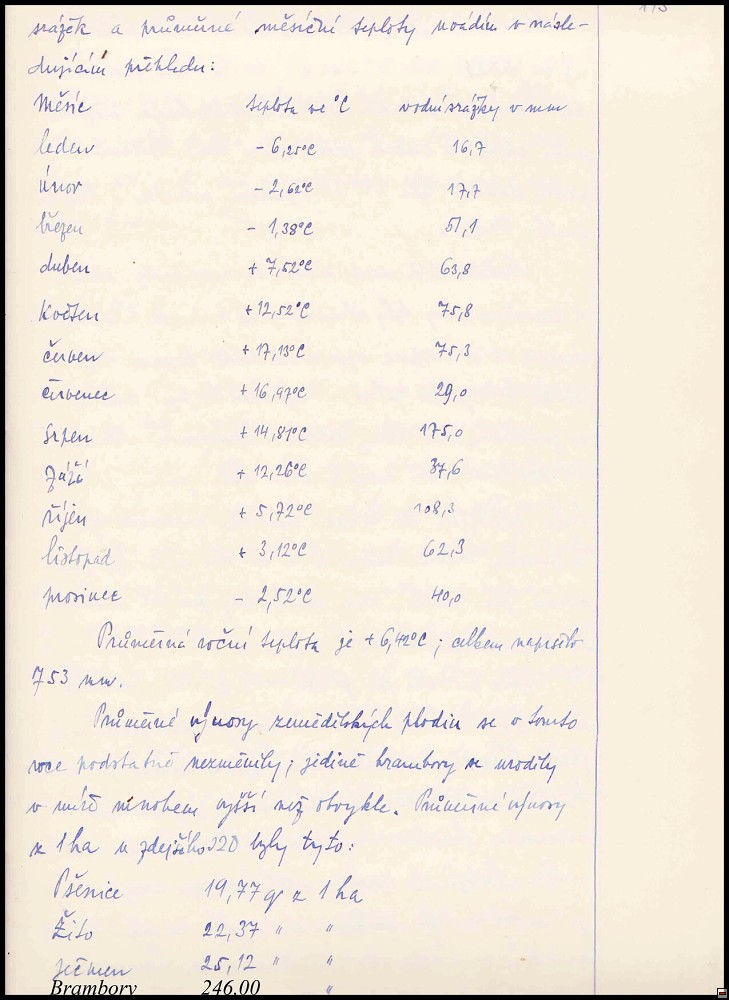 srážek a průměrné měsíční teploty uvádím v násle-
dujícím přehledu:
Měsíc teplota ve °C vodní srážky v mm
leden - 6,25°C 16,7
únor - 2,62°C 17,7
březen - 1,38°C 51,1
duben + 7,52°C 63,8
Květen + 12,52°C 75,8
červen + 17,13°C 75,3
červenec + 16,97°C 29,0
Srpen + 14,81°C 175,0
Září + 12,26°C 37,6
říjen + 5,72°C 108,3
listopad + 3,12°C 62,3
prosinec - 2,52°C 40,0
Průměrná roční teplota je + 6,42°C; celkem napršelo
753 mm.
Průměrné výnosy zemědělských plodin se v tomto
roce podstatně nezměnily; jedině brambory se urodily
v míře mnohem vyšší než obvykle. Průměrné výnosy
z 1 ha u zdejšího JZD byly tyto:
Pšenice 19,77 q z 1 ha
Žito 22,37 " "
ječmen 25,12 " "
Brambory 246,00 "